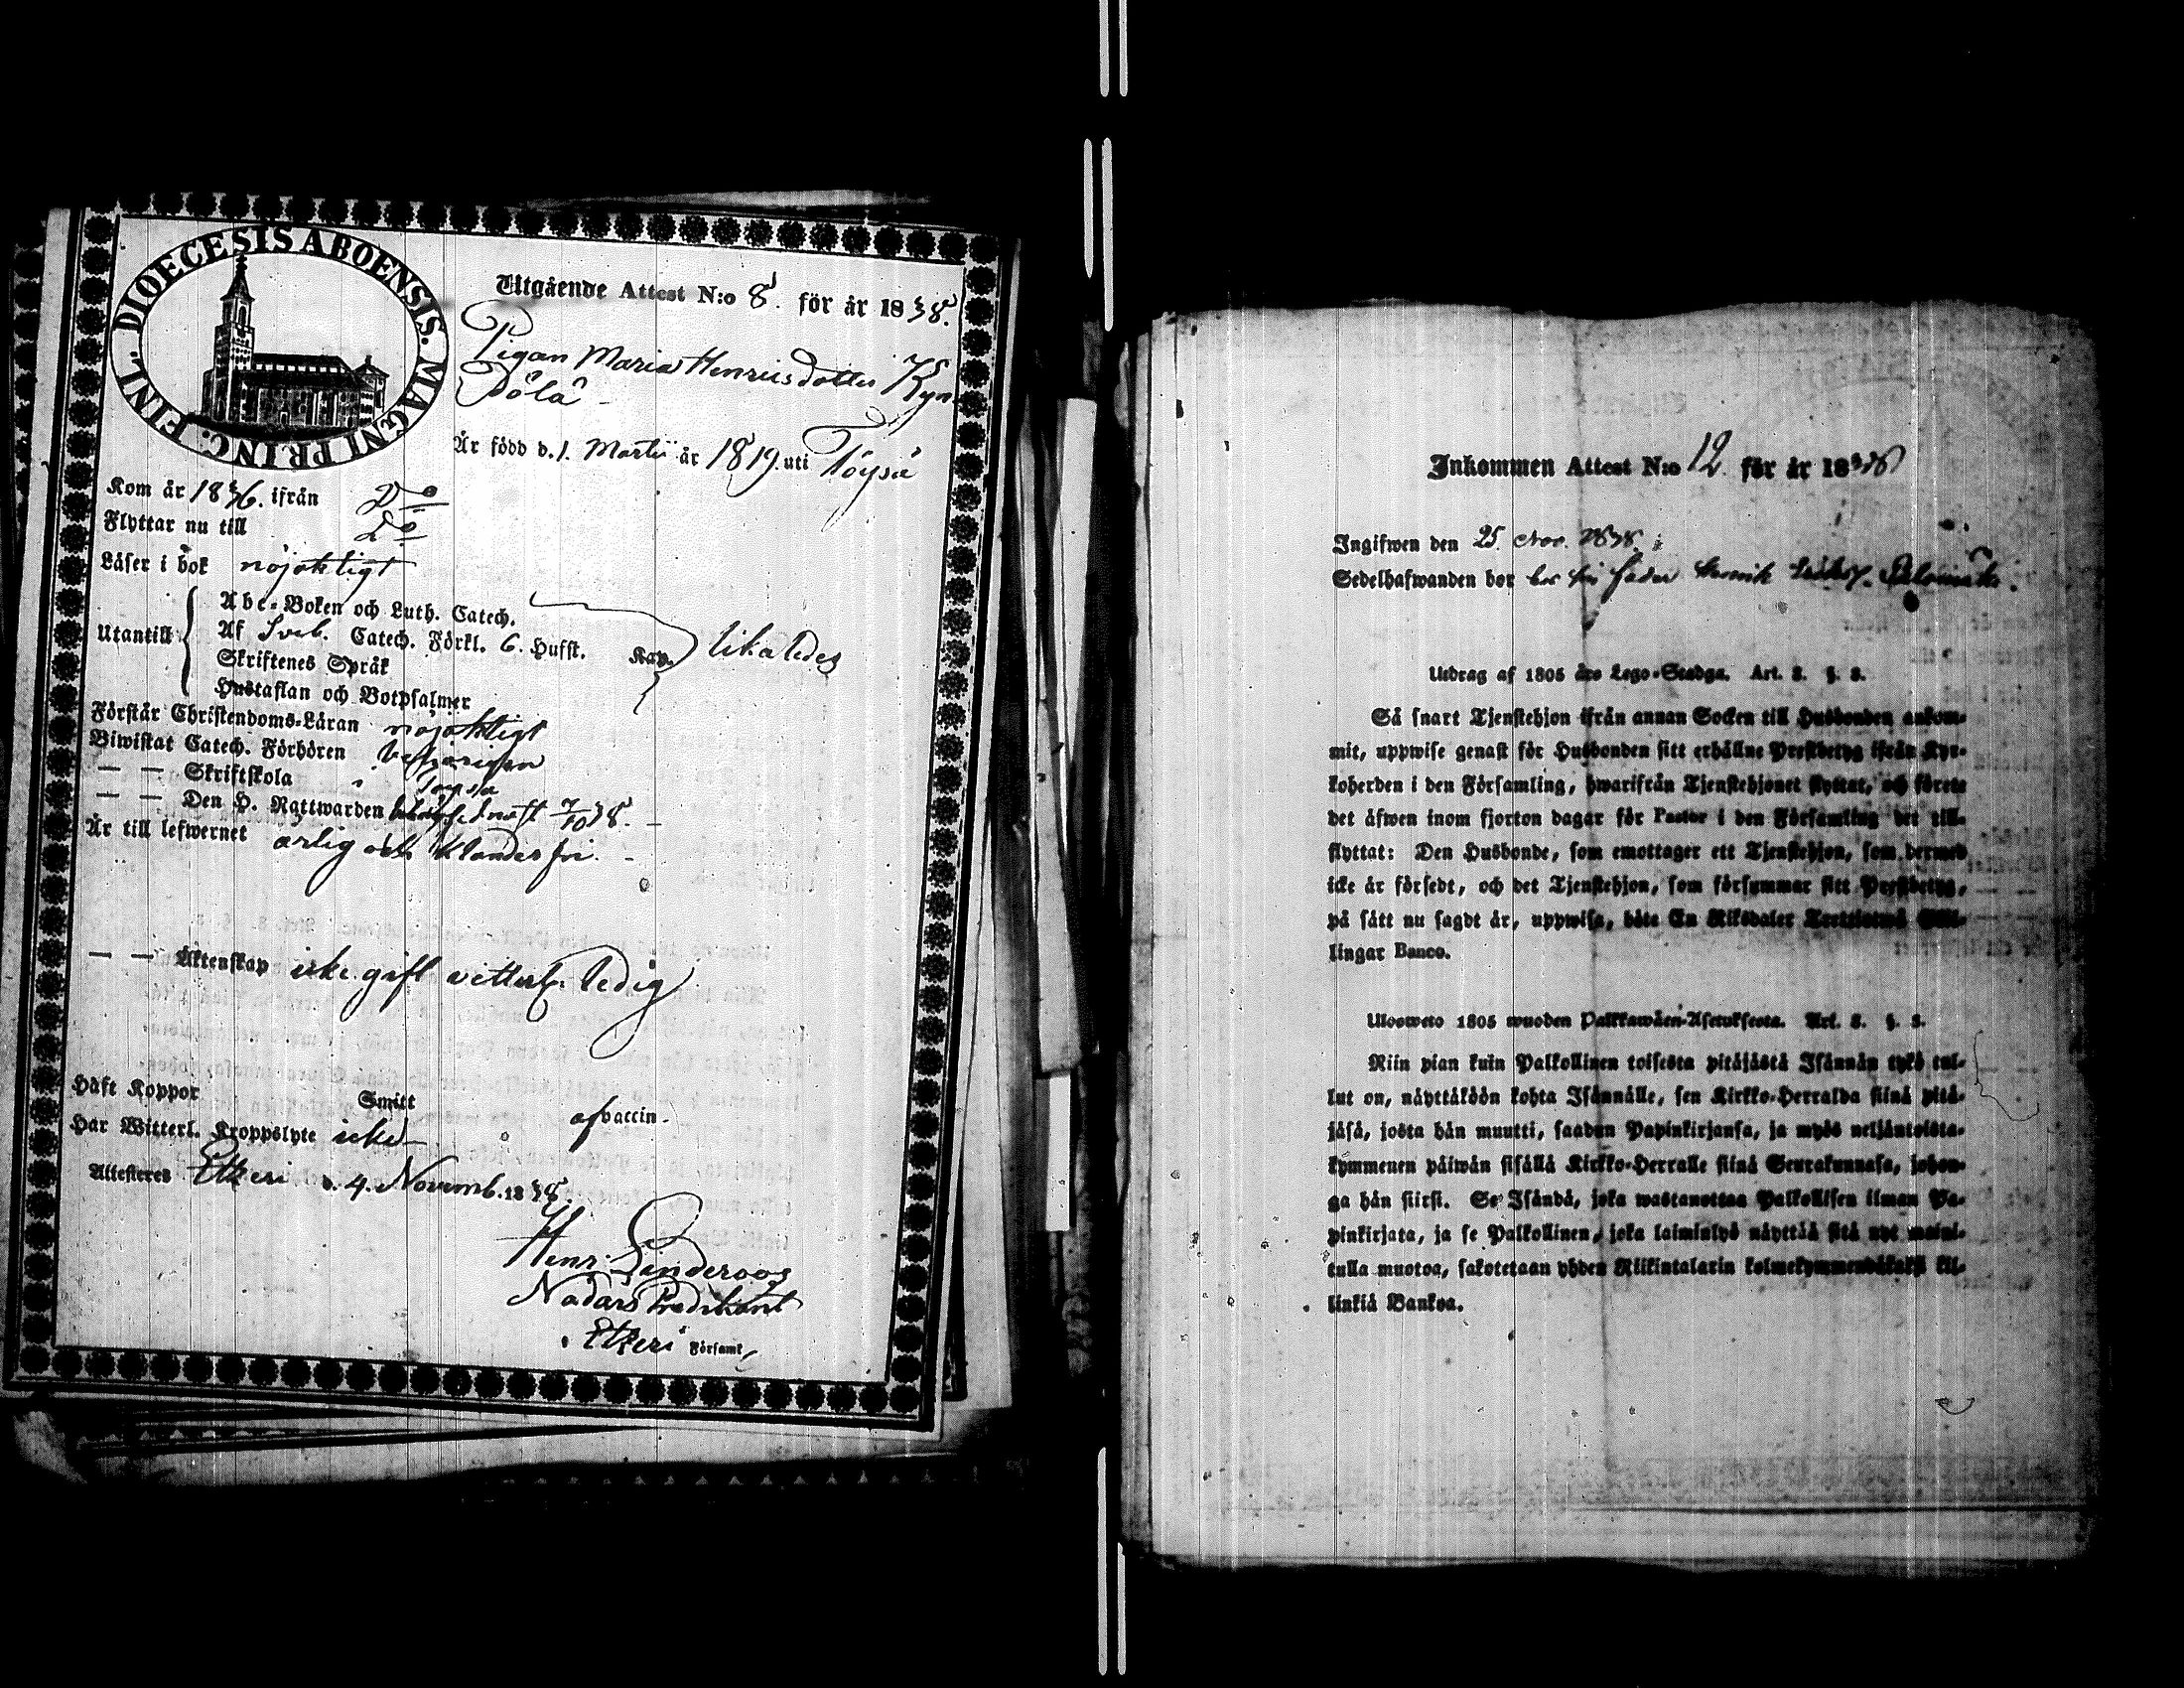 DIOECESIS ABOENSIS. MAGNI PRINC: FINL.
Utgående Attest N:o 8. för år 1838.
Pigan Maria Henricsdotter Kyn
dölä
Är född d. 1. Martii år 1819. uti Töysä
Kom år 1836. ifrån Do
Flyttar nu till Do
Läser i bok nöjaktigt
Utantill
Abc-Boken och Luth. Catech.
Af Sveb. Catech. Förkl. 6. Hufst. Kap.
likaledes
Skriftenes Språk
Hustaflan och Botpsalmer
Förstår Christendoms-Läran nöjaktigt
Biwistat Catech. Förhören behörigen
— — Skriftskola i Töysä
— — Den H. Nattwarden sednast 7/10 38. —
Är till lefwernet ärlig och klanderfri. —
— — Äktenskap icke gift vitterl. ledig
Haft Koppor Smitt af vaccin-
Har Witterl. Kroppslyte icke —
Attesteres Etheri d. 4. Novemb. 1838.
Henr. Linderoos
Nådårs Predikant
i Etheri Församl,
Inkommen Attest N:o 12. för år 1838
Ingifwen den 25. Nov. 1838.
Sedelhafwanden bor hos sin fader
Utdrag af 1805 års Lego-Stadga. Art. 8. §. 3.
Så snart Tjenstehjon ifrån annan Socken till Husbonden ankom-
mit, uppwise genast för Husbonden sitt erhållne Prestbetyg ifrån Kyr-
koherden i den Församling, hwarifrån Tjenstehjonet flyttat, och förete
det äfwen inom fjorton dagar för Pastor i den Församling det till-
flyttat: Den Husbonde, som emottager ett Tjenstehjon, som dermed
icke är försedt, och det Tjenstehjon, som försummar sitt Prestbetyg,
på sätt nu sagdt är, uppwisa, böte En Riksdaler Trettiotwå Skil-
lingar Banco.
Ulosweto 1805 wuoden Palkkawäen-Asetuksesta. Art. 8. §. 3.
Niin pian kuin Palkollinen toisesta pitäjästä Isännän tykö tul-
lut on, näyttäköön kohta Isännälle, sen Kirkko-Herralda siinä pitä-
jäsä, josta hän muutti, saadun Papinkirjansa, ja myös neljäntoista-
kymmenen päiwän sisällä Kirkko-Herralle siinä Seurakunnasa, johon-
ga hän siirsi. Se Isändä, joka wastanottaa Palkollisen ilman Pa-
pinkirjata, ja se Palkollinen, joka laiminlyö näyttää sitä nyt maini-
tulla muotoa, sakotetaan yhden Riikintalarin kolmekymmendäkaksi kil-
linkiä Bankoa.